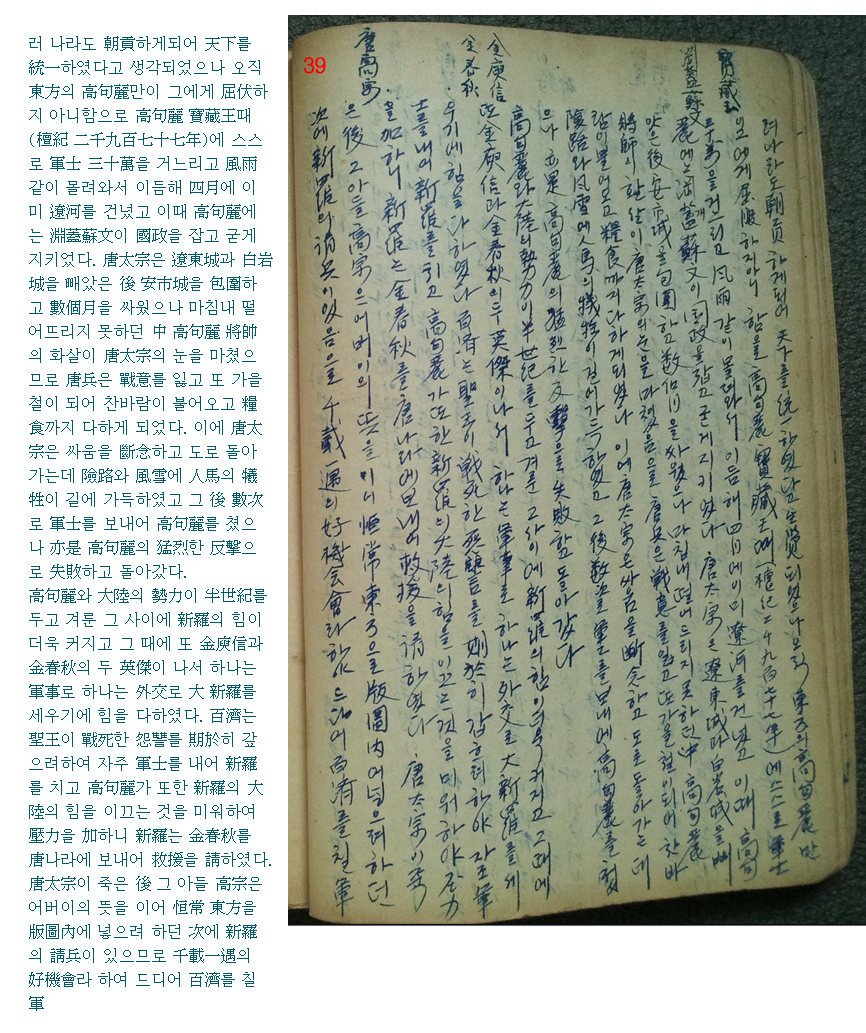 러 나라도 朝貢하게되어 天下를
統一하였다고 생각되었으나 오직
東方의 高句麗만이 그에게 屈伏하
지 아니함으로 高句麗 寶藏王때
(檀紀 二千九百七十七年)에 스스
로 軍士 三十萬을 거느리고 風雨
같이 몰려와서 이듬해 四月에 이
미 遼河를 건넜고 이때 高句麗에
는 淵蓋蘇文이 國政을 잡고 굳게
지키었다. 唐太宗은 遼東城과 白岩
城을 빼았은 後 安市城을 包圍하
고 數個月을 싸웠으나 마침내 떨
어뜨리지 못하던 中 高句麗 將帥
의 화살이 唐太宗의 눈을 마쳤으
므로 唐兵은 戰意를 잃고 또 가을
철이 되어 찬바람이 불어오고 糧
食까지 다하게 되었다. 이에 唐太
宗은 싸움을 斷念하고 도로 돌아
가는데 險路와 風雪에 人馬의 犧
牲이 길에 가득하였고 그 後 數次
로 軍士를 보내어 高句麗를 쳤으
나 亦是 高句麗의 猛烈한 反擊으
로 失敗하고 돌아갔다.
高句麗와 大陸의 勢力이 半世紀를
두고 겨룬 그 사이에 新羅의 힘이
더욱 커지고 그 때에 또 金庾信과
金春秋의 두 英傑이 나서 하나는
軍事로 하나는 外交로 大 新羅를
세우기에 힘을 다하였다. 百濟는
聖王이 戰死한 怨讐를 期於히 갚
으려하여 자주 軍士를 내어 新羅
를 치고 高句麗가 또한 新羅의 大
陸의 힘을 이끄는 것을 미워하여
壓力을 加하니 新羅는 金春秋를
唐나라에 보내어 救援을 請하였다.
唐太宗이 죽은 後 그 아들 高宗은
어버이의 뜻을 이어 恒常 東方을
版圖內에 넣으려 하던 次에 新羅
의 請兵이 있으므로 千載一遇의
好機會라 하여 드디어 百濟를 칠
軍
39
寶藏王
淵蓋蘇文
러 나라도 朝貢하게되어 天下를 統一하였다고 生覺되었으나 오직 東方의 高句麗만
이 그에게 屈服하지 아니함을 高句麗 寶藏王때(檀紀 二千九百七十七年)에 스스로 軍士
三十萬을 거느리고 風雨같이 몰려와서 이듬해 四月에 이미 遼河를 건넜고 이때 高句
麗에는 淵蓋蘇文이 國政을 잡고 굳게 지키였다 唐太宗은 遼東城과 白岩城을 빼
았은 後 安市城을 包圍하고 數個月을 싸웠으나 마침내 떨어뜨리지 못하던 中 高句麗
將帥의 한 살이 唐太宗의 눈을 마쳤음으로 唐兵은 戰意를 잃고 또 가을철이 되어 찬바
람이 불어오고 糧食까지 다하게 되었다 이에 唐太宗은 싸움을 斷念하고 도로 돌아가는데
險路와 風雪에 人馬의 犧牲이 길에 가득하였고 그 後 數次로 軍士를 보내어 高句麗를 쳤
으나 亦是 高句麗의 猛烈한 反擊으로 失敗하고 돌아갔다
高句麗와 大陸의 勢力이 半世紀를 두고 겨룬 그 사이에 新羅의 힘이 더욱 커지고 그때에
金庾信
金春秋
또 金庾信과 金春秋의 두 英傑이 나서 하나는 軍事로 하나는 外交로 大新羅를 세
우기에 힘을 다하였다 百濟는 聖王이 戰死한 怨讐를 期於히 갚흐려하야 자조 軍
士를 내어 新羅를 치고 高句麗가 또한 新羅의 大陸의 힘을 이끄는 것을 미워하야 壓力
을 加하니 新羅는 金春秋를 唐나라에 보내어 救援을 請하였다 唐太宗이 죽
唐高宗
은 後 그 아들 高宗은 어버이의 뜻을 이어 恒常 東方으로 版圖內에 넣으려 하던
次에 新羅의 請兵이 있음으로 千載一遇의 好機會라 하야 드디어 百濟를 칠 軍